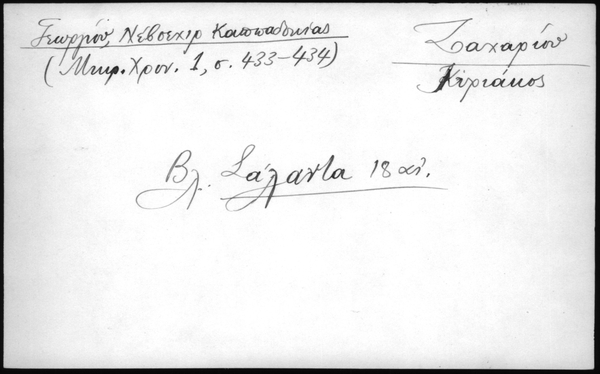 Γεωργίου, Νέβσεχιρ Καππαδοκίας
(Μικρ. Χρον. 1, σ. 433-434)
Ζαχαρίου
Κυριάκος
Βλ. Σάλαντα 18 αἰ.